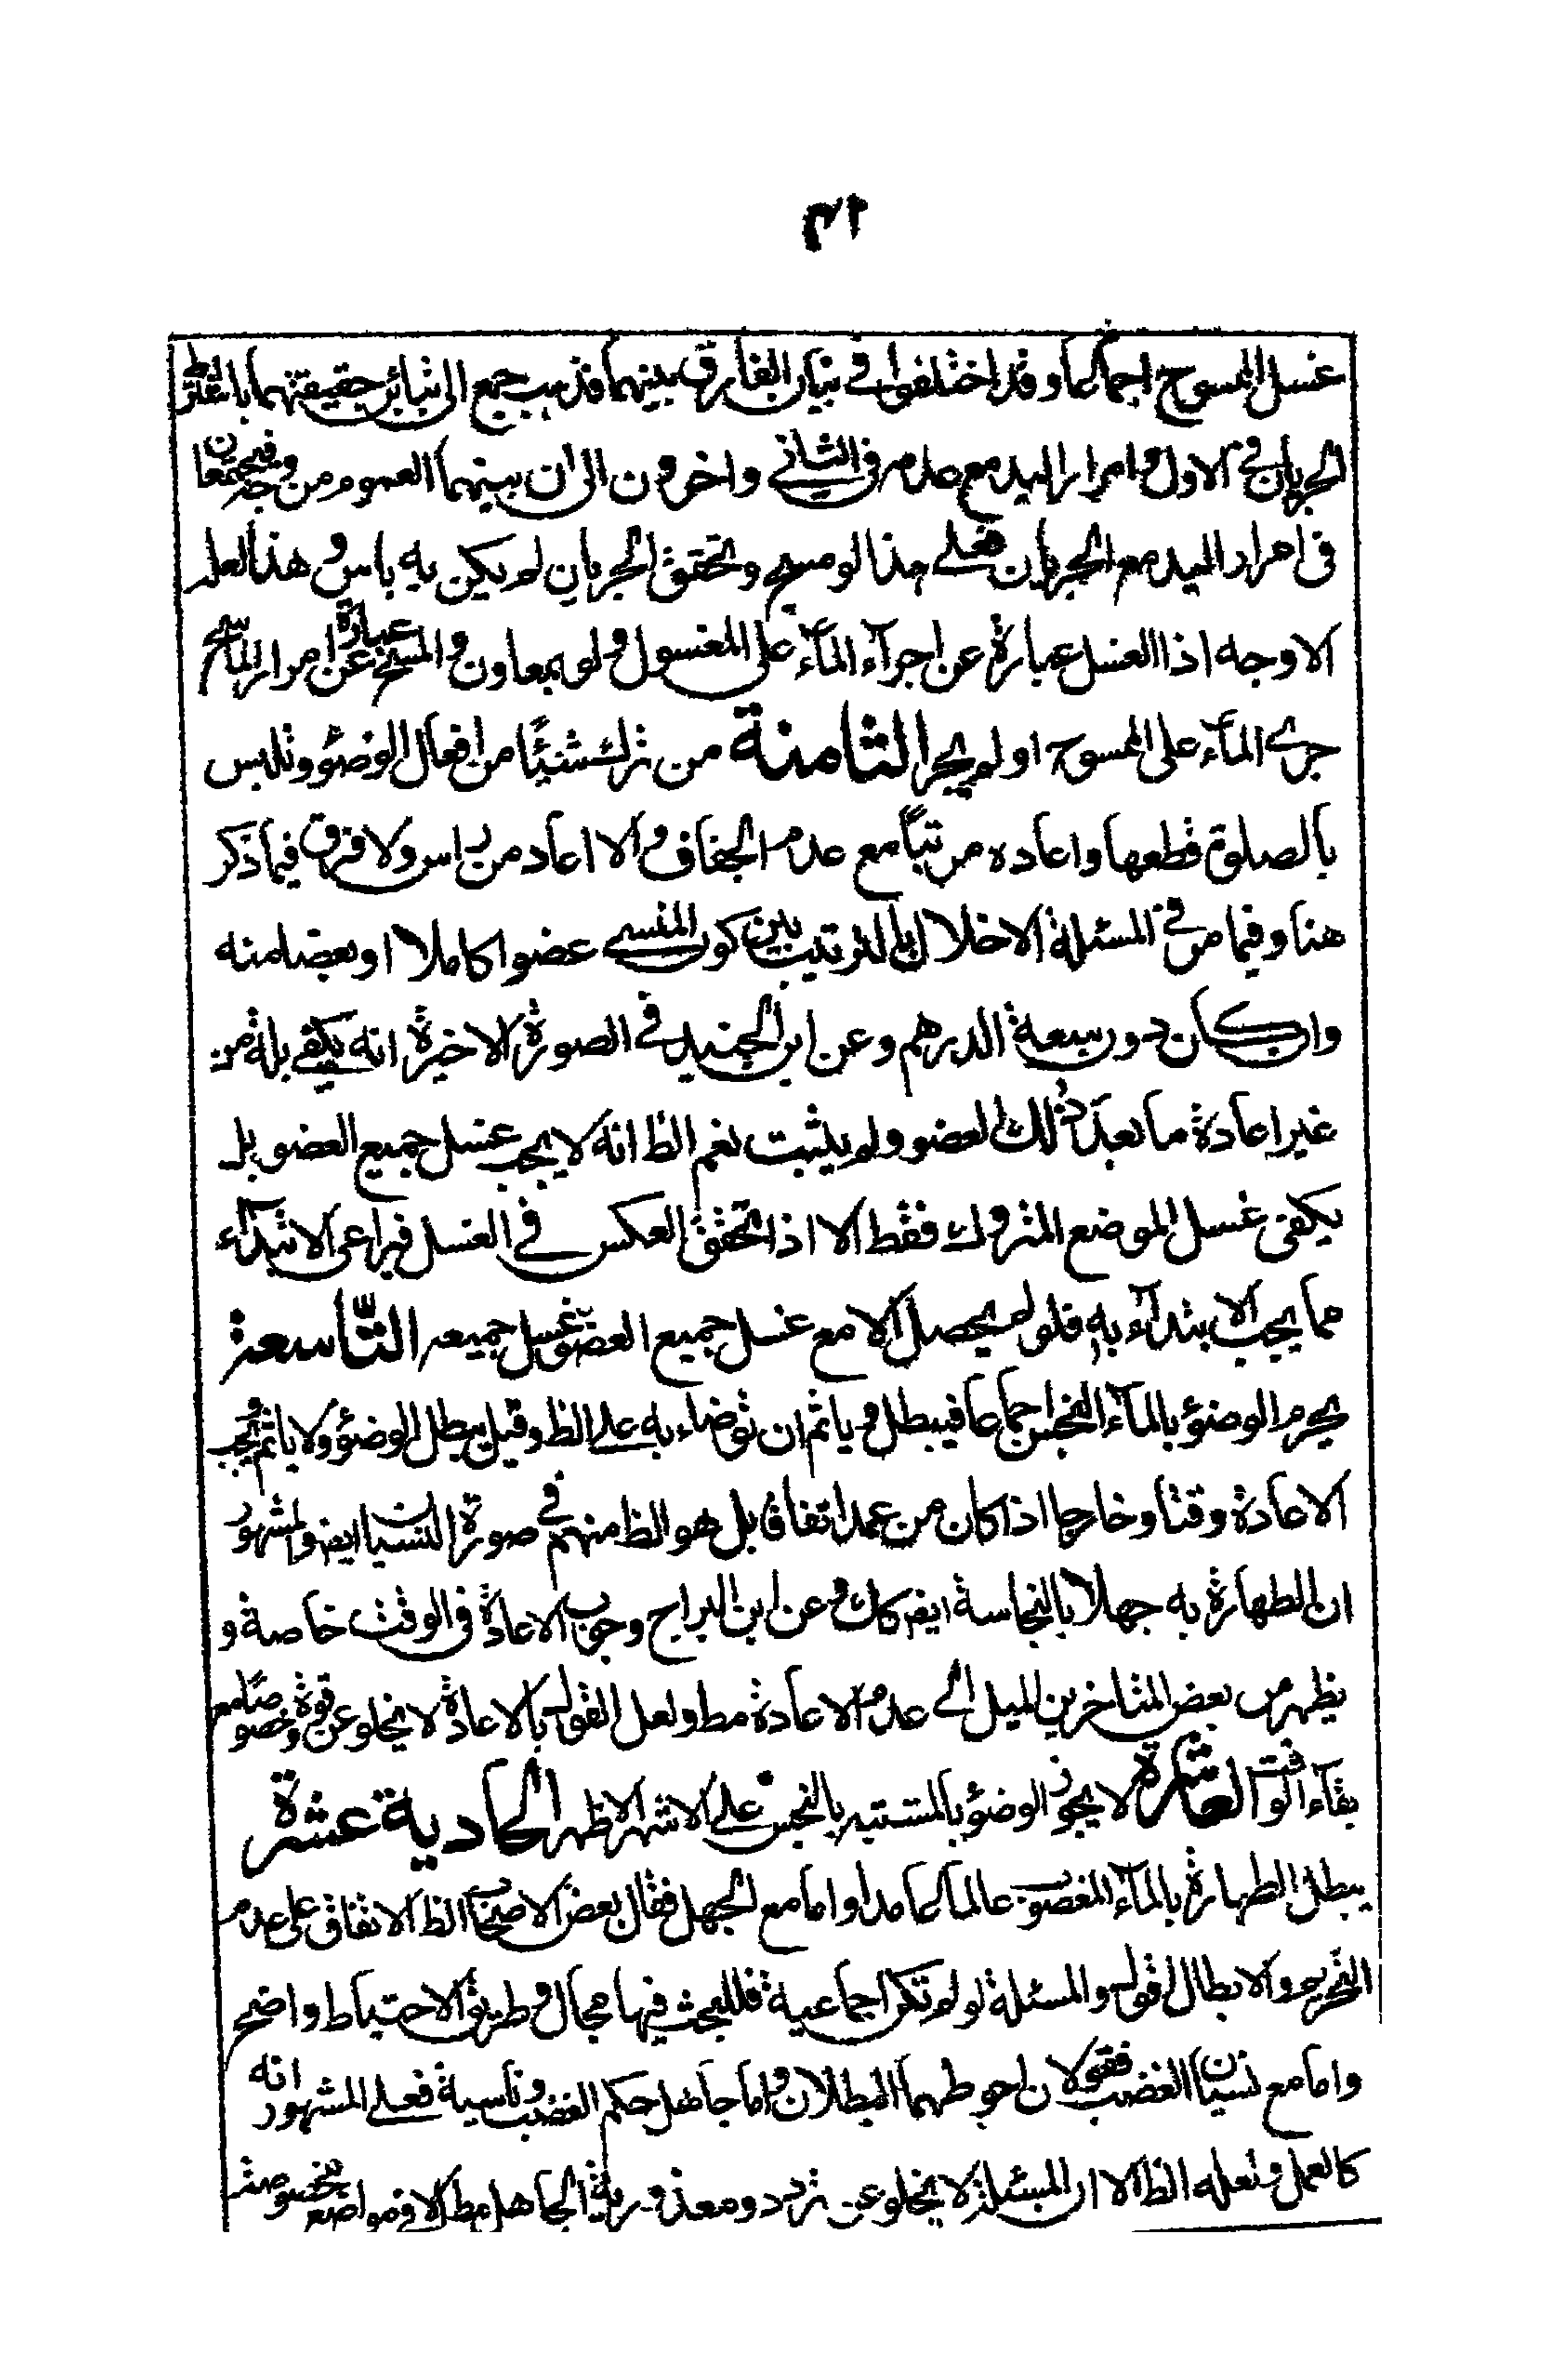 ٣١
غسل الممسوح اجماعا وقد اختلفوا في بيان الفارق بينهما فذهب جمع الى تباين حقيقتهما باعتبار
الجريان في الاول وامرار اليد مع عدمه في الثاني واخرون الى ان بينهما العموم من وجه فيجتمعان
في امرار اليد مع الجريان فعلى هذا لو مسح وتحقق الجريان لم يكن به باس وهذا لعله
الاوجه اذا الغسل عبارة عن اجرآء المآء على المغسول ولو بمعاون والمسح عبارة عن امرار الماسح
جرى المآء على الممسوح او لم يجر الثامنة من ترك شيئا من افعال الوضوء وتلبس
بالصلوة قطعها واعاده مرتبا مع عدم الجفاف والا اعاد من راس ولا فرق فيما ذكر
هنا وفيما مر في المسئلة الاخلال بالترتيب بين كون المنسي عضوا كاملا او بعضا منه
وان كان دون سعة الدرهم وعن ابن الجنيد في الصورة الاخيرة انه يكفي بله من
غير اعادة ما بعد ذلك العضو ولم يثبت نعم الظ انه لا يجب غسل جميع العضو بل
يكفى غسل الموضع المتروك فقط الا اذا تحقق العكس في الغسل فيراعى الابتدآء
مما يجب الابتدآء به فلو لم يحصل الا مع غسل جميع العضو غسل جميعه التاسعة
يحرم الوضوء بالمآء النجس اجماعا فيبطل وياثم ان توضاء به على الظ وقيل يبطل الوضوء ولا ياثم ويجب
الاعادة وقتا وخارجا اذا كان من عمد اتفاقا بل هو الظ منهم في صورة النسيان ايض والمشهور
ان الطهارة به جهلا بالنجاسة ايض كك وعن ابن البراج وجوب الاعادة في الوقت خاصة و
يظهر من بعض المتاخرين الميل الى عدم الاعادة مط ولعل القول بالاعادة لا يخلو عن قوة وخصوصا مع
بقآء الوقت العاشرة لا يجوز الوضوء بالمشتبه بالنجس على الاشهر الاظهر الحادية عشرة
يبطل الطهارة بالمآء المغصوب عالما عامدا واما مع الجهل فقال بعض الاصحاب الظ الاتفاق على عدم
التحريم والابطال قول والمسئلة لو لم تكن اجماعية فللبحث فيها مجال وطريق الاحتياط واضح
واما مع نسيان الغصب فقولان احوطهما البطلان واما جاهل حكم الغصب وناسيه فعلى المشهور انه
كالعمل ولعله الظ الا ان المسئلة لا يخلو عن تردد ومعذورية الجاهل مط الا في مواضع مخصوصة